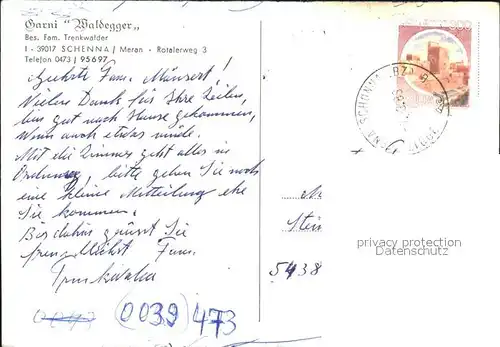 Garni "Waldegger„
Bes. Fam. Trenkwalder
I - 39017 SCHENNA / Meran - Rotalerweg 3
Telefon 0473 / 95697
Geehrte Fam. Münsert!
Vielen Dank für Ihre Zeilen,
bin gut nach Hause gekommen,
wenn auch etwas müde.
Mit die Zimmer geht alles in
Ordnung, bitte geben Sie noch
eine kleine Mitteilung ehe
Sie kommen.
Bis dahin grüsst Sie
freundlichst Fam.
Trenkwalder
(0039) 473
5438
privacy protection
Datenschutz